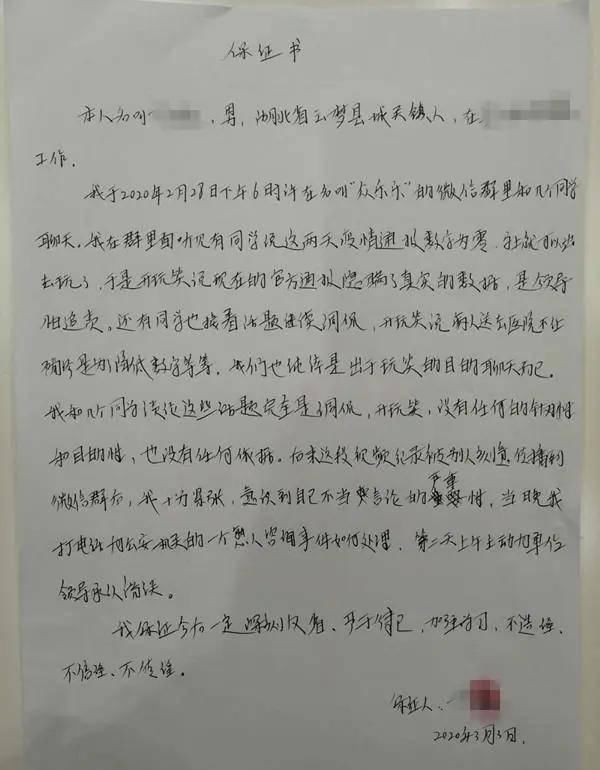 保证书
本人名叫 ，男，湖北省云梦县城关镇人，在
工作。
我于2020年2月28日下午6时许在名叫“众乐乐”的微信群里和几个同学
聊天。我在群里面听见有同学说这两天疫情通报数字为零，马上就可以出
去玩了，于是开玩笑说现在的官方通报隐瞒了真实的数据，是领导
怕追责。还有同学也接着话题继续调侃，开玩笑说病人送去医院不让
确诊是为了降低数字等等。我们也纯粹是出于玩笑的目的聊天而已。
我和几个同学谈论这些话题完全是调侃，开玩笑，没有任何的针对性
和目的性，也没有任何依据。后来这段视频纪录被别人刻意传播到
微信群后，我十分紧张，意识到自己不当言论的严重性，当晚我
打电话向公安机关的一个熟人咨询事件如何处理，第二天上午主动向单位
领导承认错误。
我保证今后一定深刻反省、严于律己，加强学习，不造谣、
不信谣、不传谣。
保证人：
2020年3月3日.